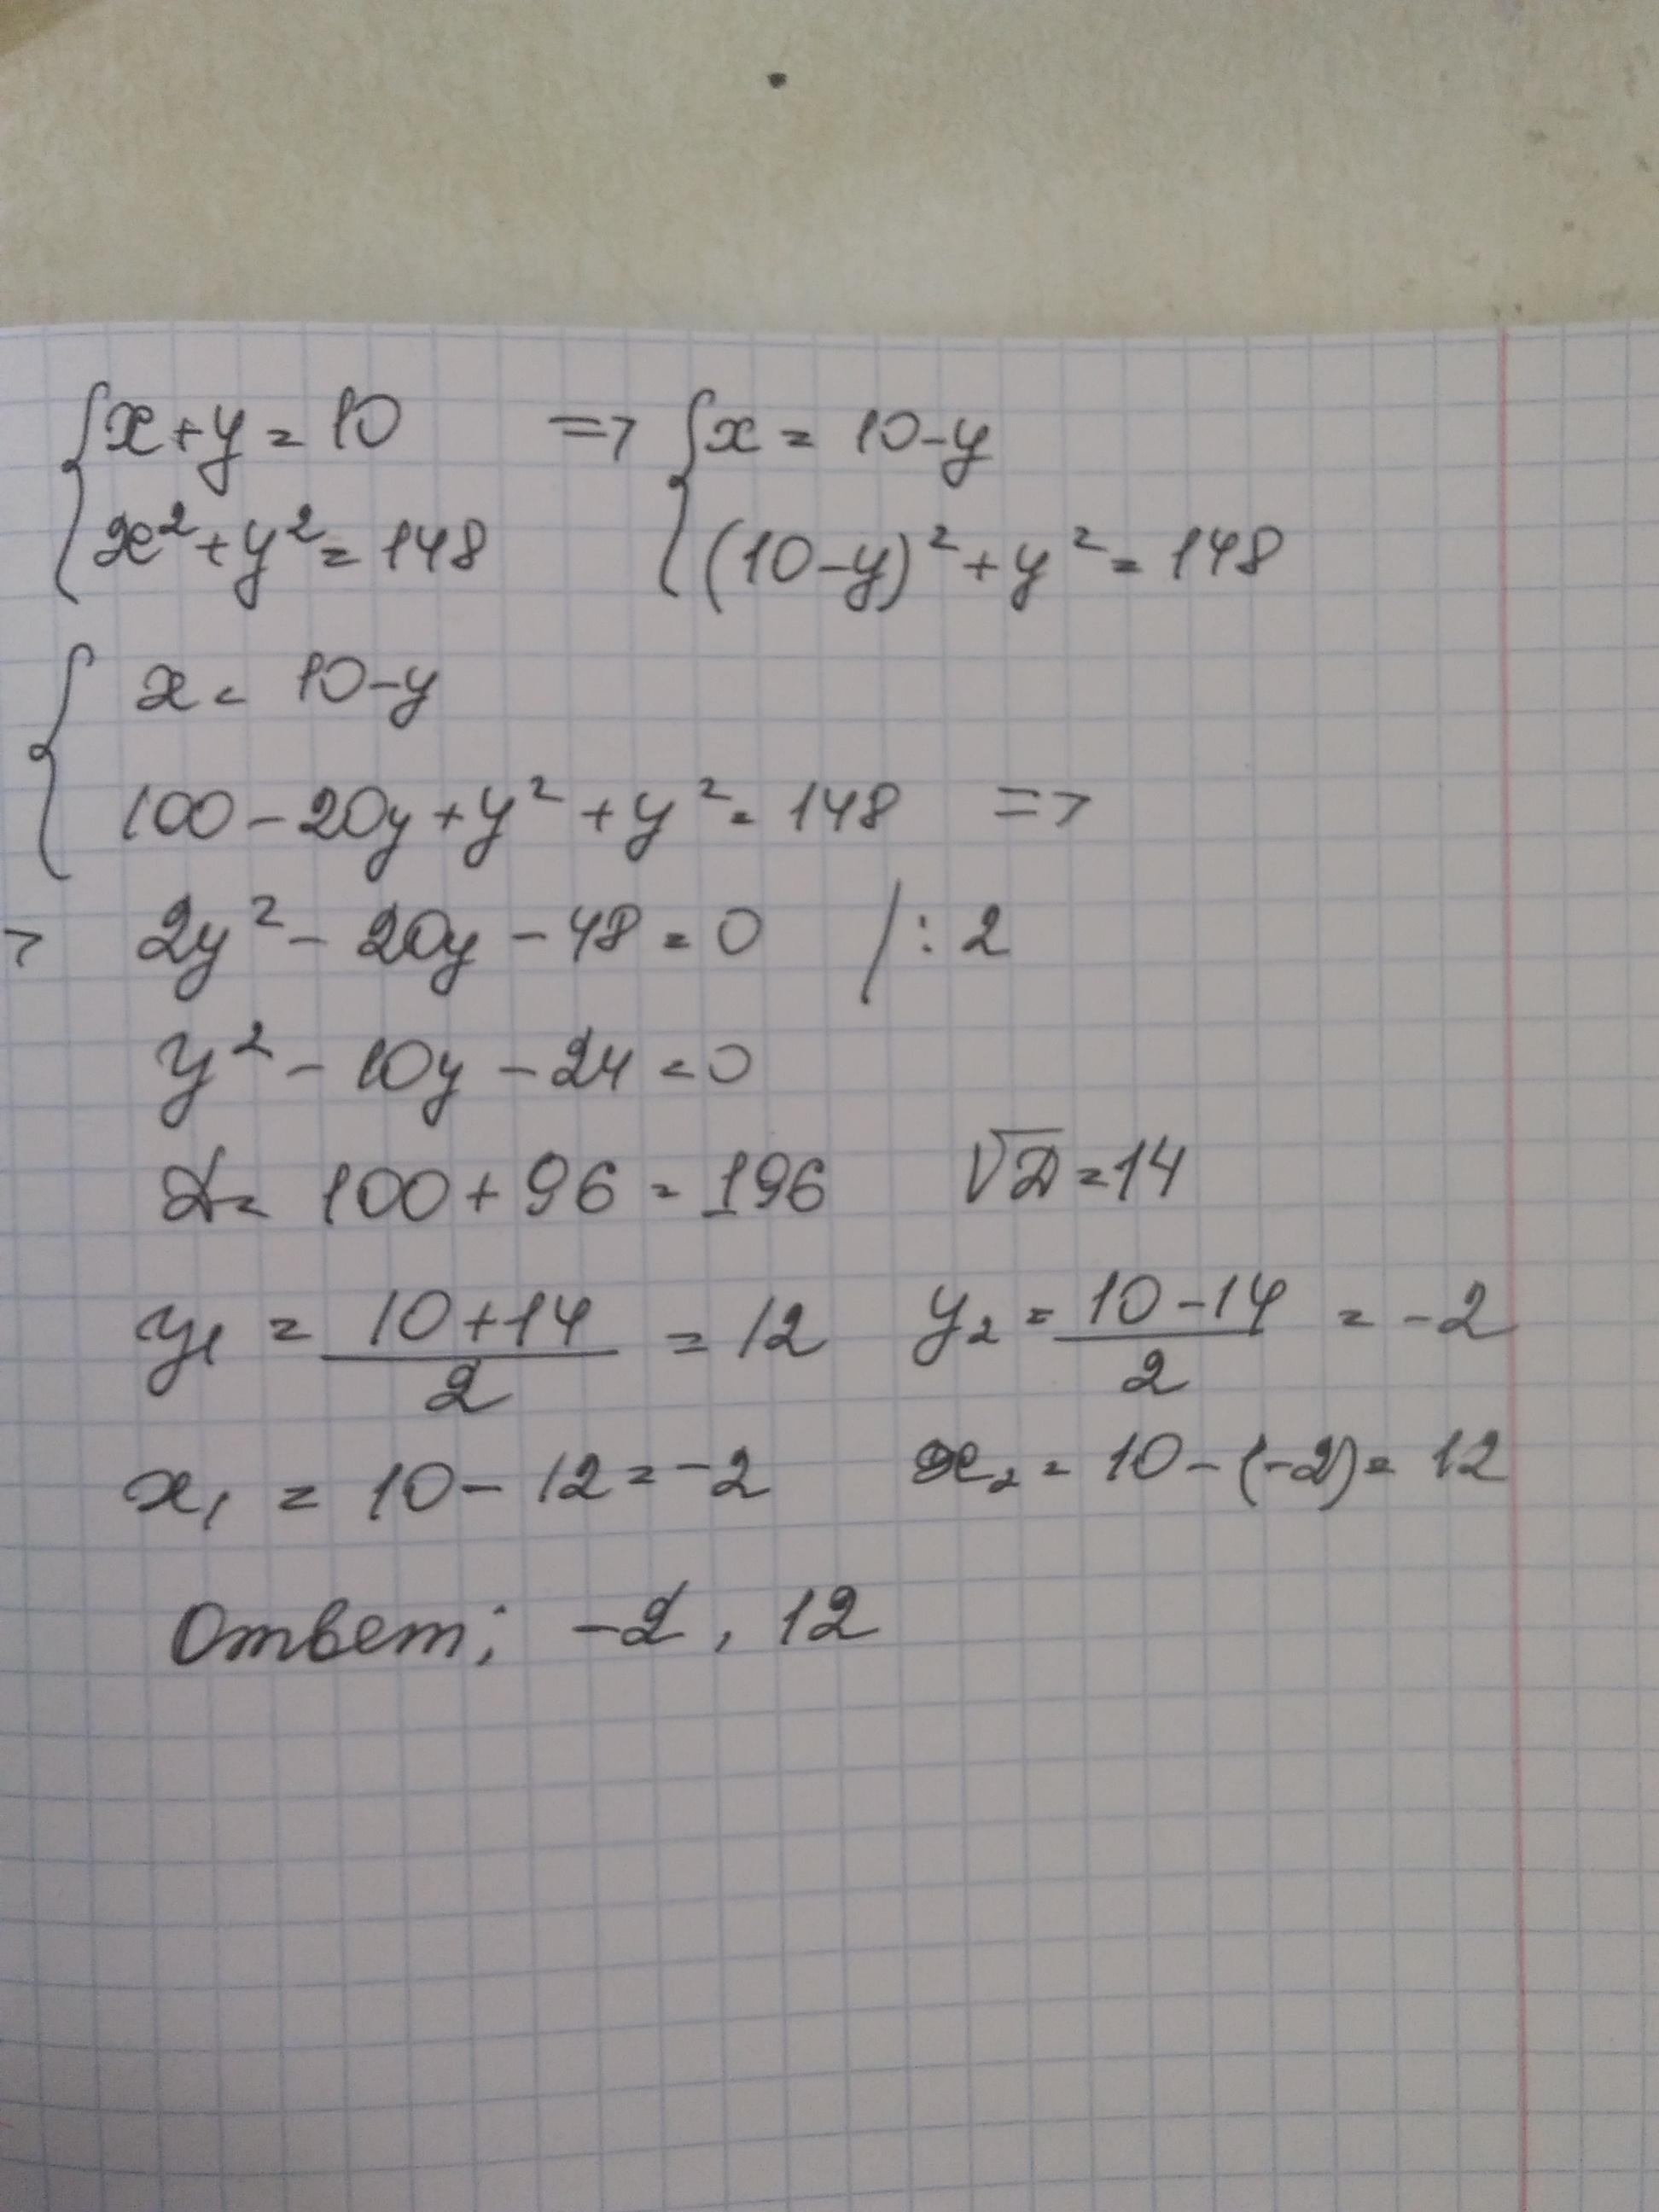 {x+y=10 => {x=10-y
{x²+y²=148 {(10-y)²+y²=148
{x=10-y
{100-20y+y²+y²=148 =>
> 2y²-20y-48=0 /:2
y²-10y-24=0
D=100+96=196 √D=14
y₁=(10+14)/2=12 y₂=(10-14)/2=-2
x₁=10-12=-2 x₂=10-(-2)=12
Ответ: -2, 12